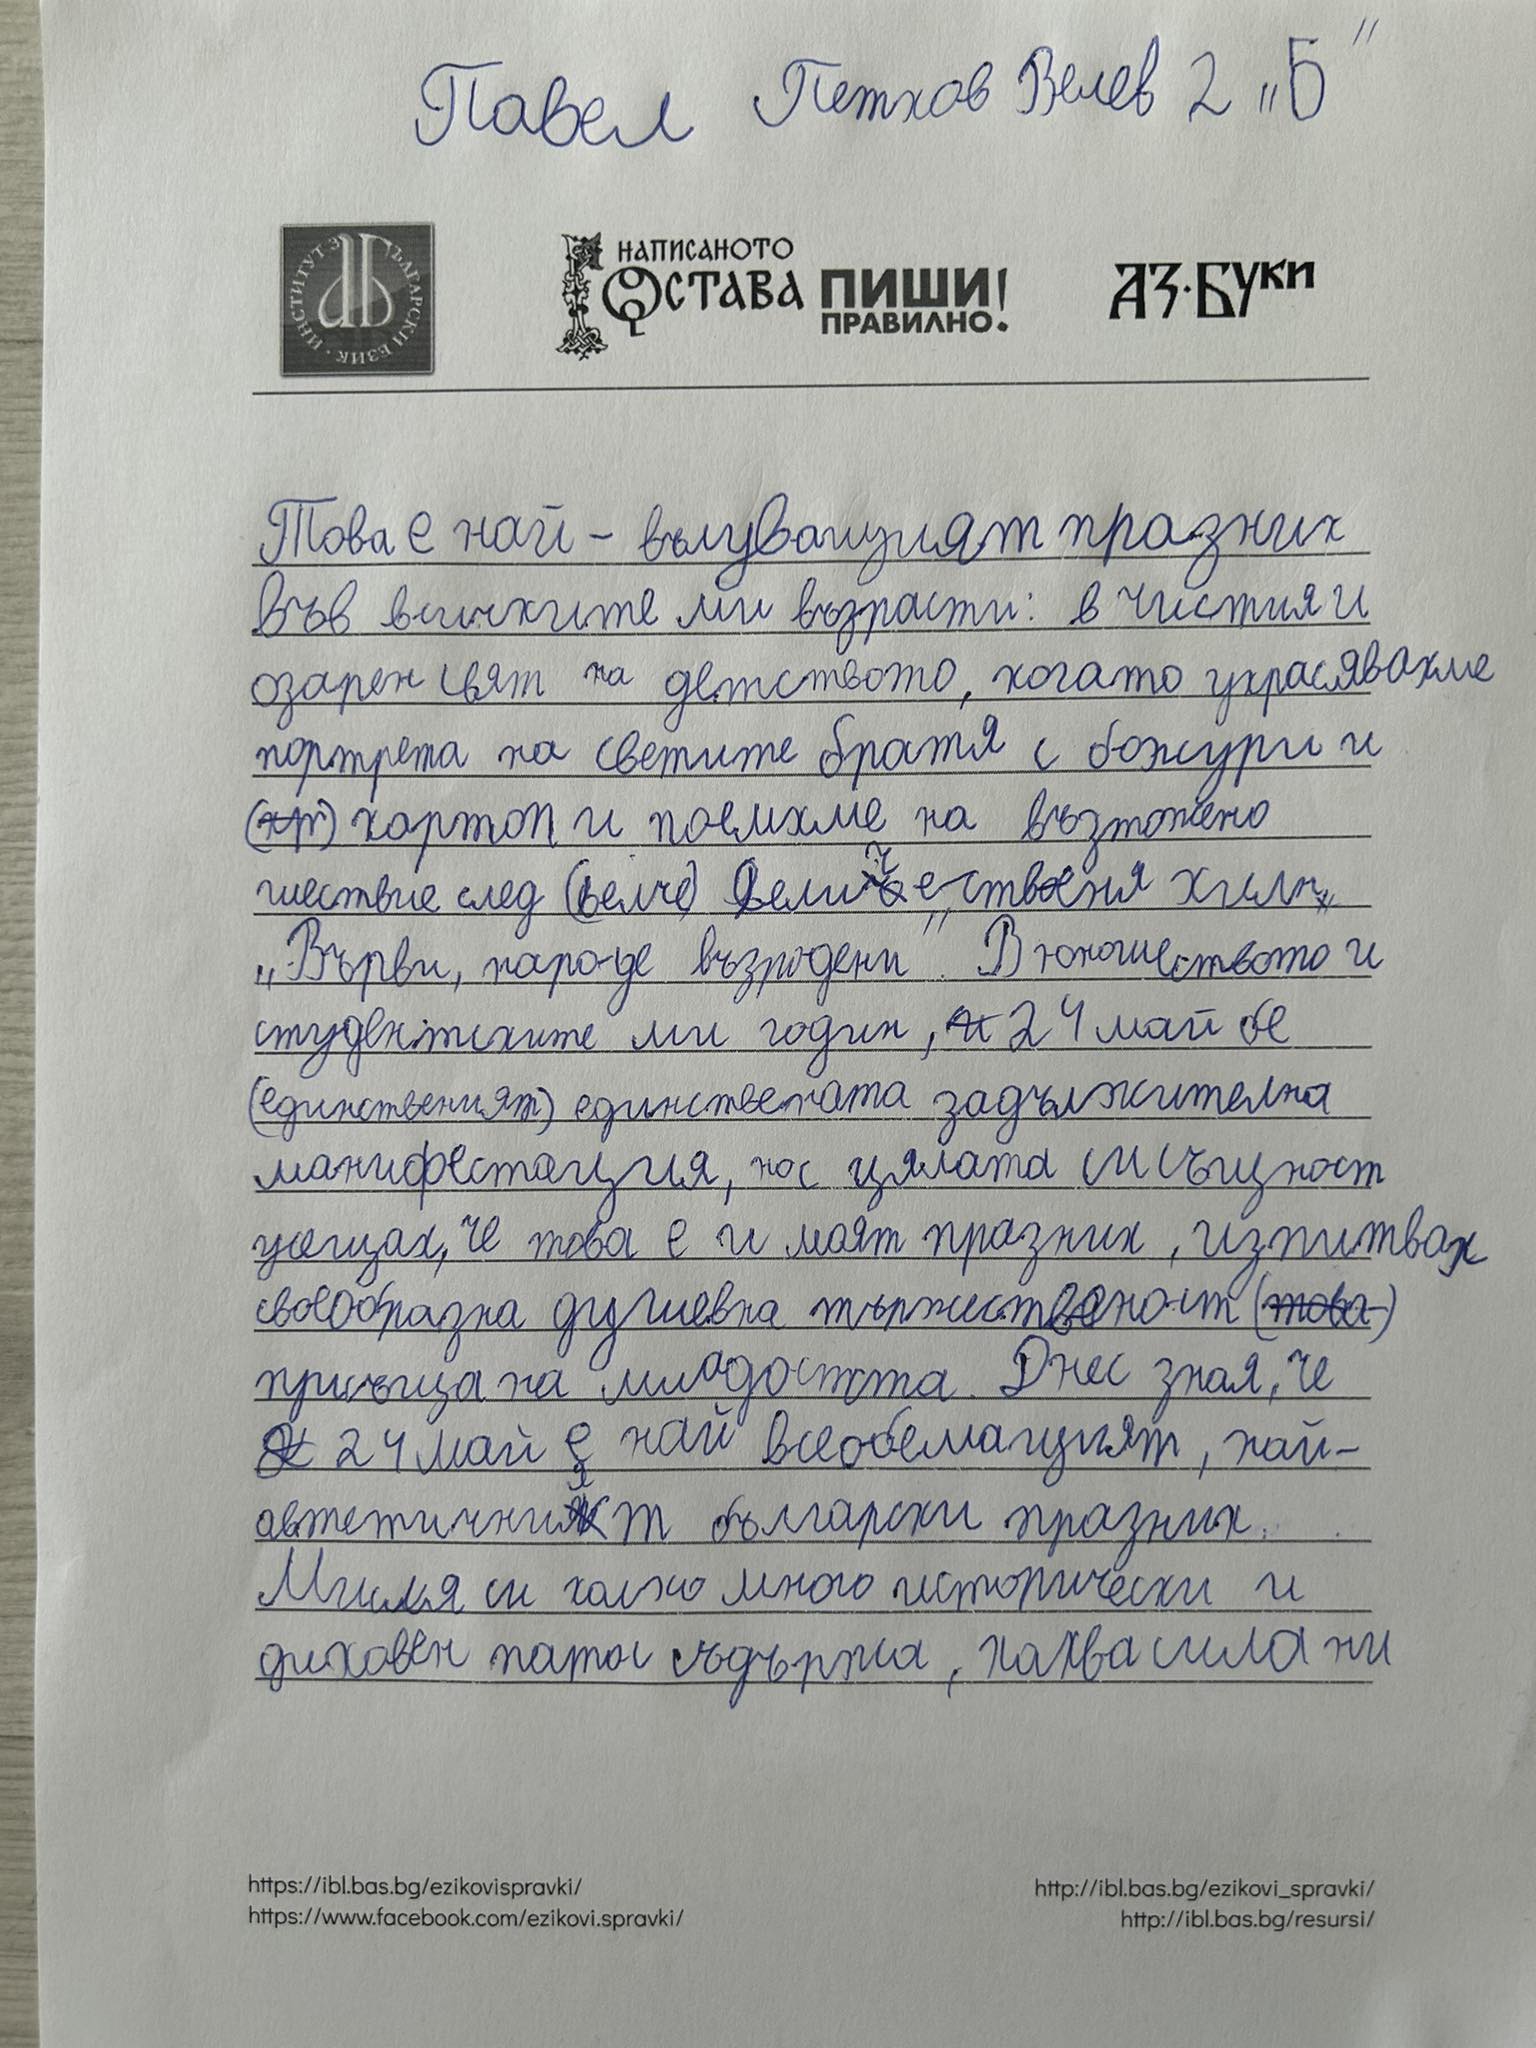 Павел Петков Велев 2 „Б“
ИНСТИТУТ ЗА БЪЛГАРСКИ ЕЗИК
НАПИСАНОТО
ОСТАВА ПИШИ
ПРАВИЛНО!
АЗ·БУКИ
Това е най-вълуващият празник
във всичките ми възрасти: в чистия и
озарен свят на детството, когато украсявахме
портрета на светите братя с божури и
картон и поемхме на възтожено
шествие след (велче) величествения химн
„Върви, народе възродени“. В юношеството и
студентските ми годин, 24 май бе
(единственият) единствената задължителна
манифестация, но с цялата си същност
усещах, че това е и моят празник, изпитвах
своеобразна душевна тържественост (това)
присъща на младостта. Днес зная, че
24 май е най всеобемащият, най-
автетичният български празник.
Мисля си колко много исторически и
диховен патос съдържа, каква сила ни
https://ibl.bas.bg/ezikovispravki/
https://www.facebook.com/ezikovi.spravki/
http://ibl.bas.bg/ezikovi_spravki/
http://ibl.bas.bg/resursi/